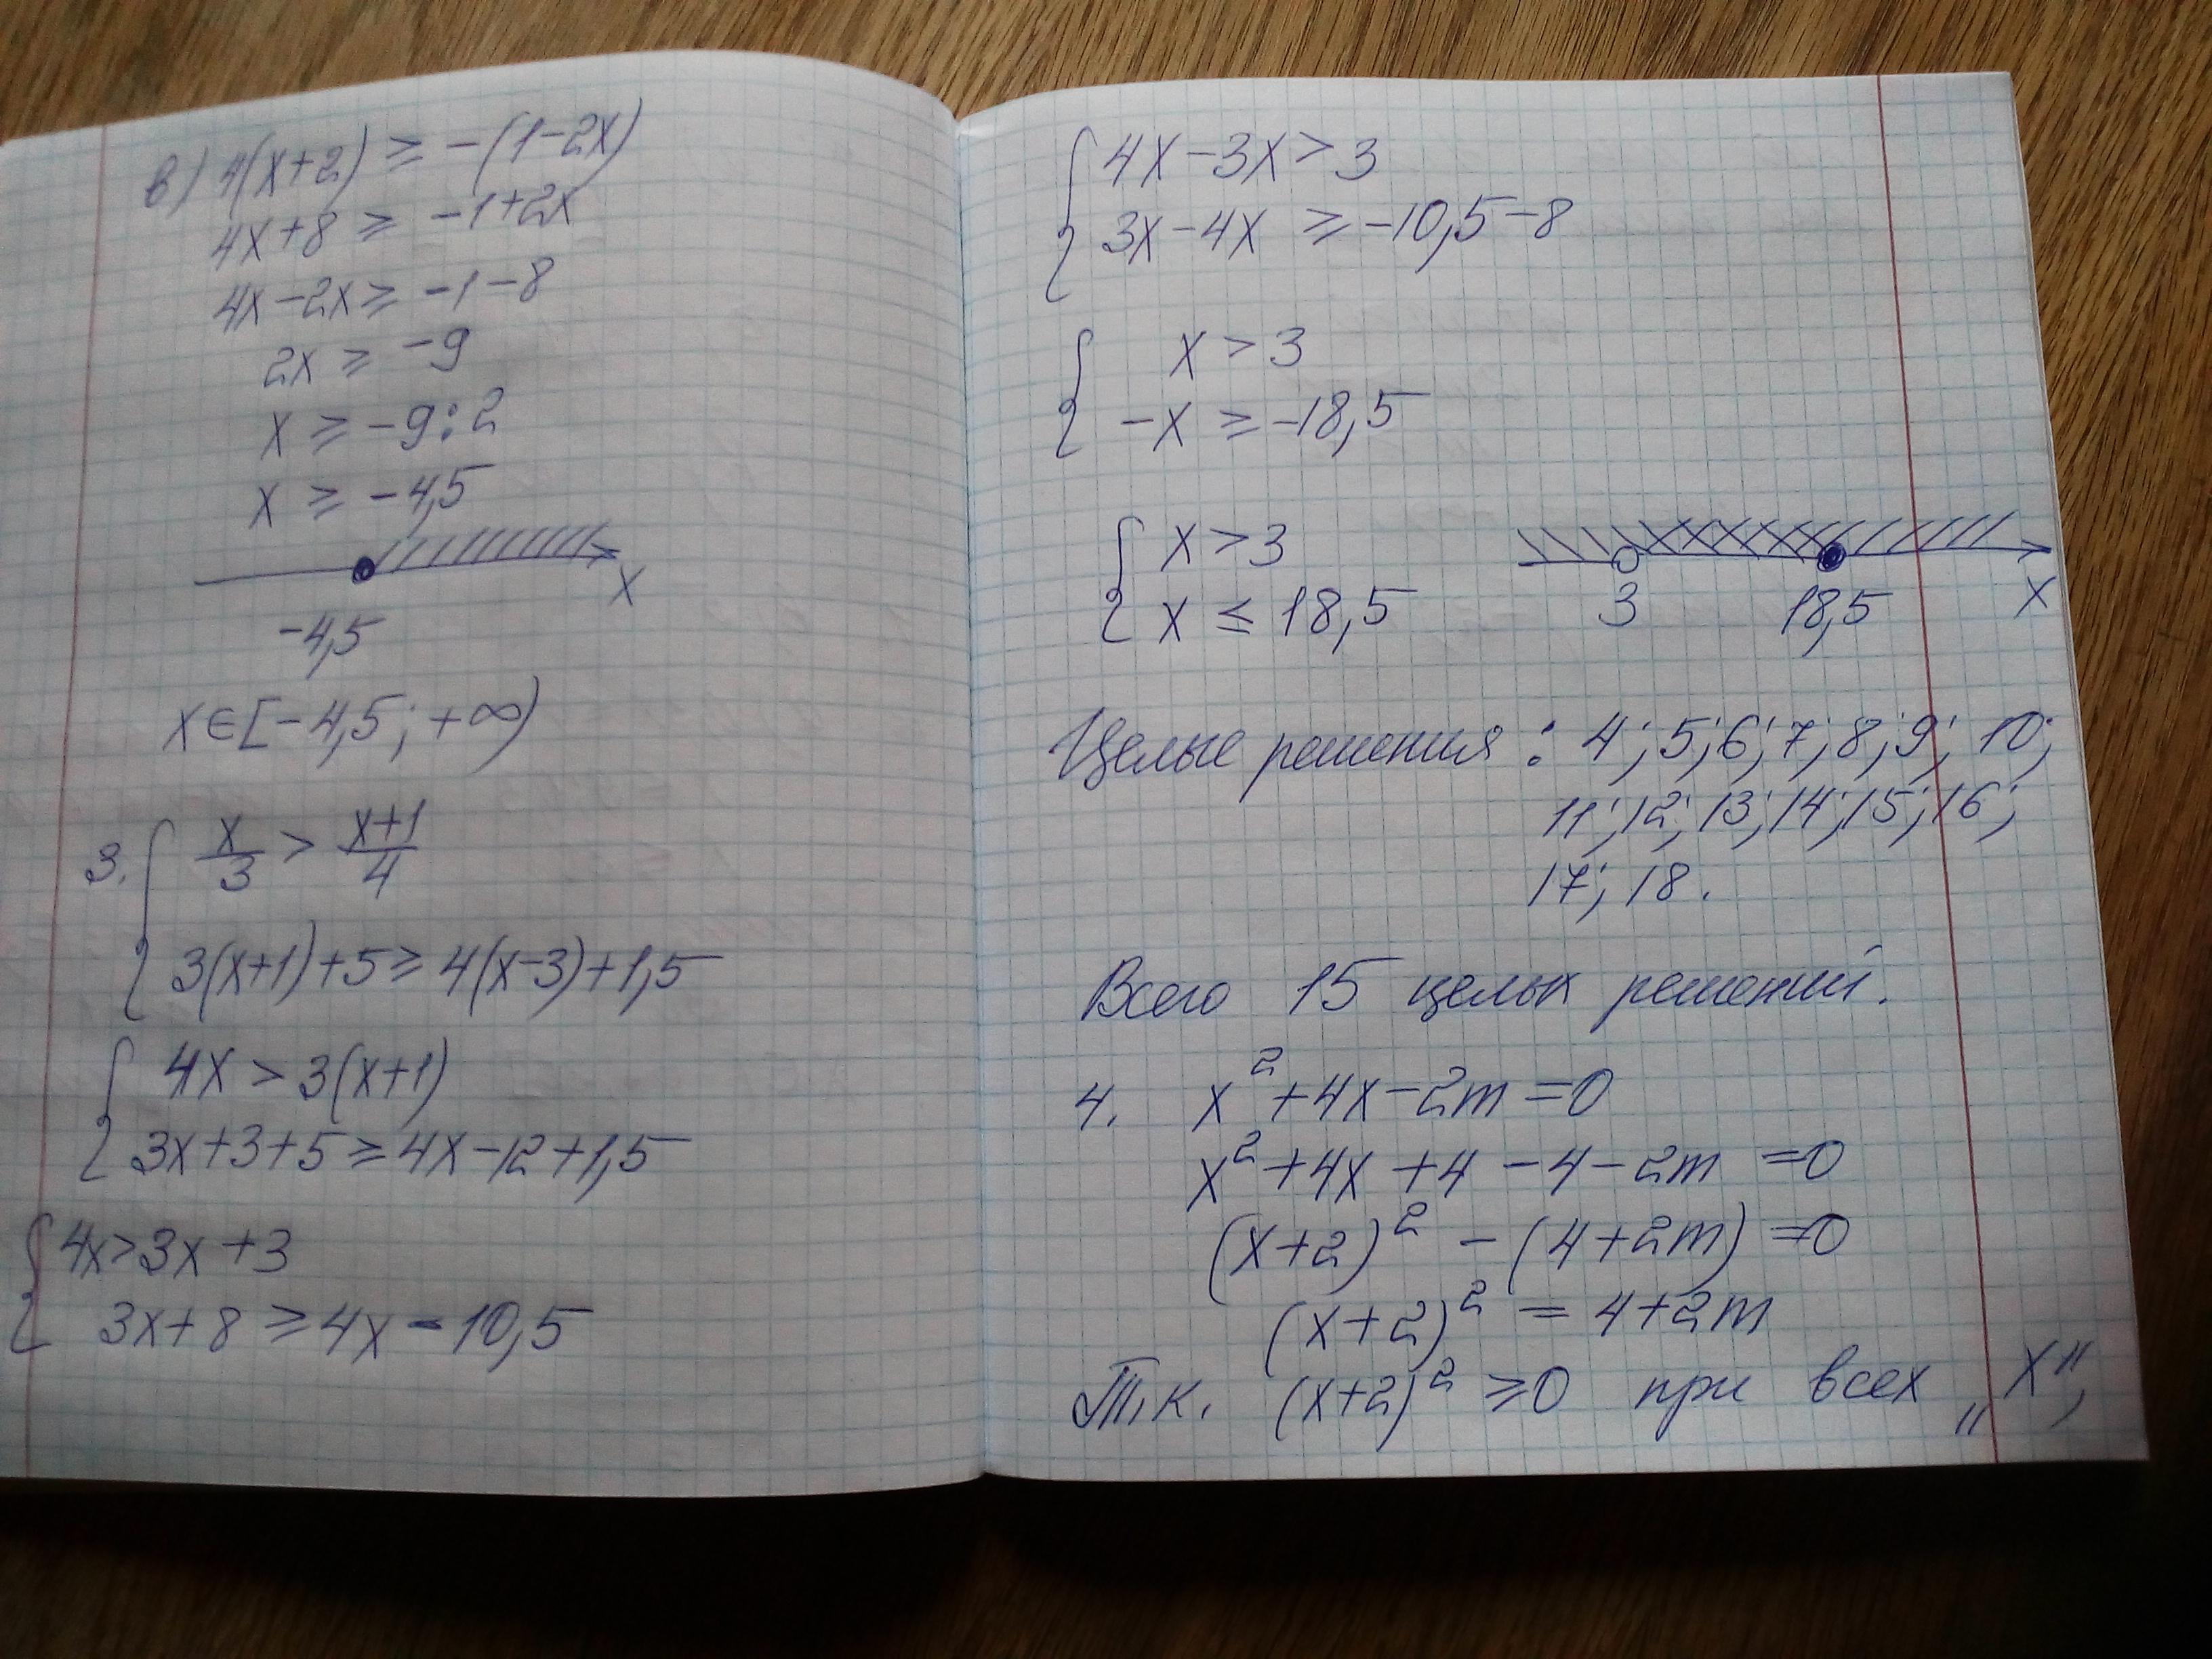 в) 4(x+2) ≥ -(1-2x)
4x+8 ≥ -1+2x
4x-2x ≥ -1-8
2x ≥ -9
x ≥ -9:2
x ≥ -4,5
x
-4,5
x∈[-4,5; +∞)
3. { x/3 > (x+1)/4
3(x+1)+5 ≥ 4(x-3)+1,5
{ 4x > 3(x+1)
3x+3+5 ≥ 4x-12+1,5
{ 4x>3x+3
3x+8 ≥ 4x-10,5
{ 4x-3x > 3
3x-4x ≥ -10,5-8
{ x > 3
-x ≥ -18,5
{ x > 3
x ≤ 18,5
3 18,5 x
Целые решения: 4; 5; 6; 7; 8; 9; 10;
11; 12; 13; 14; 15; 16;
17; 18.
Всего 15 целых решений.
4. x²+4x-2m=0
x²+4x+4-4-2m=0
(x+2)²-(4+2m)=0
(x+2)²=4+2m
Т.к. (x+2)² ≥0 при всех „x",